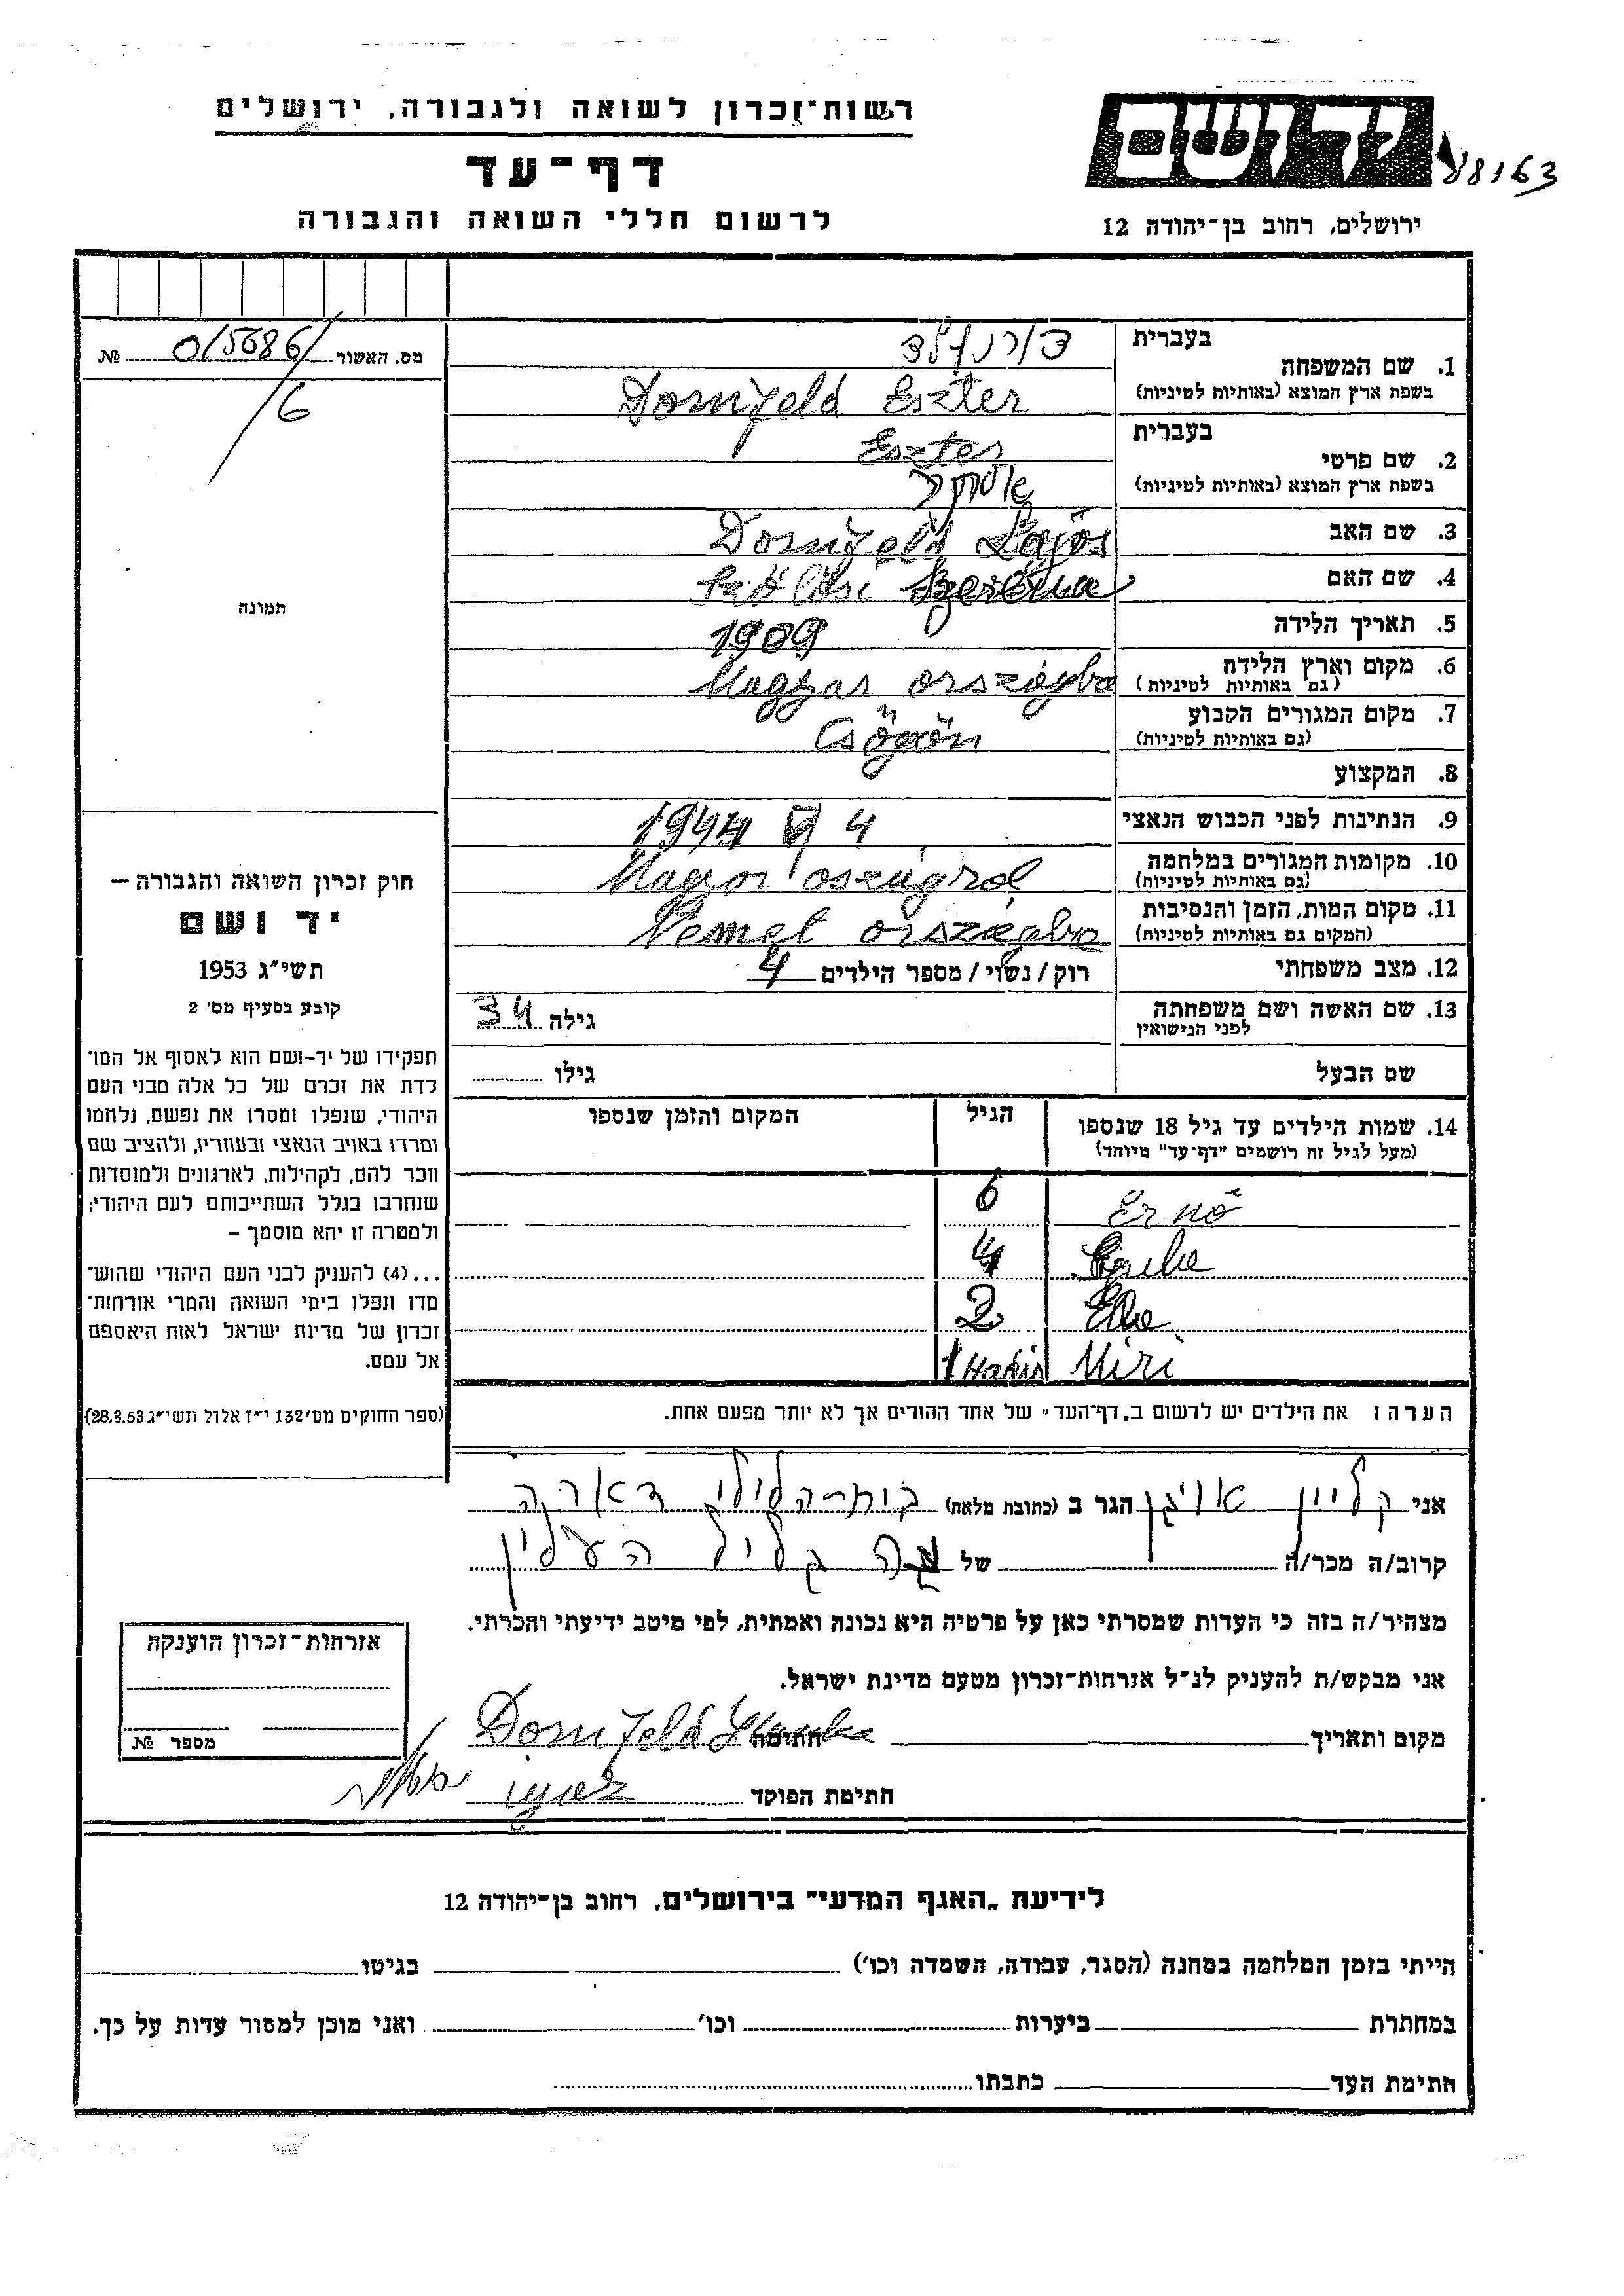 רשות-זכרון לשואה ולגבורה, ירושלים
דף-עד
לרשום חללי השואה והגבורה
יד ושם
ירושלים, רחוב בן-יהודה 12
מס. האשור 0/5686/ №
6
תמונה
בעברית
1. שם המשפחה דורנפלד
בשפת ארץ המוצא (באותיות לטיניות) Dornfeld Eszter
בעברית
2. שם פרטי Eszter
בשפת ארץ המוצא (באותיות לטיניות) אסתר
3. שם האב Dornfeld Lajos
4. שם האם
5. תאריך הלידה 1909
6. מקום וארץ הלידה Magyar országba
(גם באותיות לטיניות)
7. מקום המגורים הקבוע
(גם באותיות לטיניות)
8. המקצוע
9. הנתיבות לפני הכבוש הנאצי 1944 4
10. מקומות המגורים במלחמה
(גם באותיות לטיניות)
11. מקום המות, הזמן והנסיבות Nemet országba
(המקום גם באותיות לטיניות)
12. מצב משפחתי רוק/נשוי/מספר הילדים 4
13. שם האשה ושם משפחתה גילה 34
לפני הנישואין
שם הבעל גילו
14. שמות הילדים עד גיל 18 שנספו הגיל המקום והזמן שנספו
(מעל לגיל זה רושמים "דף-עד" מיוחד)
Ernö 6
4
2
Miri 1
הערה: את הילדים יש לרשום ב"דף-העד" של אחד ההורים אך לא יותר מפעם אחת.
חוק זכרון השואה והגבורה –
יד ושם
תשי"ג 1953
קובע בסעיף מס' 2
תפקידו של יד-ושם הוא לאסוף אל המו־
לדת את זכרם של כל אלה מבני העם
היהודי, שנפלו ומסרו את נפשם, נלחמו
ומרדו באויב הנאצי ובעוזריו, ולהציב שם
וזכר להם, לקהילות, לארגונים ולמוסדות
שנחרבו בגלל השתייכותם לעם היהודי;
ולמטרה זו יהא מוסמך –
...(4) להעניק לבני העם היהודי שהוש־
מדו ונפלו בימי השואה והמרי אזרחות־
זכרון של מדינת ישראל לאות היאספם
אל עמם.
(ספר החוקים מס' 132 י"ז אלול תשי"ג 28.8.53)
אני קליין הגר ב (כתובת מלאה)
קרוב/ה מכר/ה של גליל העליון
מצהיר/ה בזה כי העדות שמסרתי כאן על פרטיה היא נכונה ואמתית, לפי מיטב ידיעתי והכרתי.
אני מבקש/ת להעניק לנ"ל אזרחות-זכרון מטעם מדינת ישראל.
מקום ותאריך חתימה Dornfeld
חתימת הפוקד
אזרחות-זכרון הוענקה
מספר №
לידיעת "האגף המדעי" בירושלים, רחוב בן-יהודה 12
הייתי בזמן המלחמה במחנה (הסגר, עבודה, השמדה וכו') בגיטו
במחתרת ביערות וכו' ואני מוכן למסור עדות על כך.
חתימת העד כתבתו